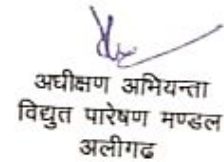 अधीक्षण अभियन्ता
विद्युत पारेषण मण्डल
अलीगढ